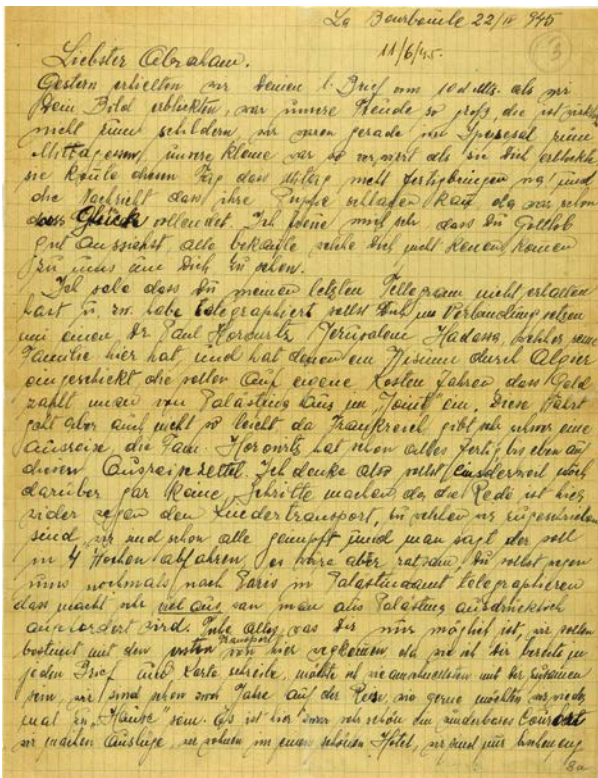 La Bourboule 22/IV 945
11/6/45.
3
Liebster Abraham.
Gestern erhielten wir Deinen l. Brief vom 10 d. Mts. als wir
Dein Bild erblickten, war unsere Freude so groß, die ist
nicht zum schildern, wir waren gerade im Speisesal zum
Mittagessen, unsere kleine war so als sie Dich erblickte
sie konte diesen Tag dass nicht fertigbringen und
die Nachricht dass ihre Puppe schlafen kan, da war schon
dass Glück vollendet. Ich freue mich sehr, dass Du Gottlob
gut aussiehst, alle bekante welche Dich nicht kenen, komen
zu uns um Dich zu sehen.
Ich sehe dass Du meinen letzten Tellegram nicht erhalten
hast u. zw. habe telegraphiert sollst Dich in Verbindung setzen
mit einen Dr. Paul Horowitz, Jerusalem Hadassa, welcher seine
Familie hier hat, und hat denen ein Visum durch
eingeschickt, die sollen auf eigene Kosten fahren, dass Geld
zahlt man von Palästina aus im "Joint" ein. Diese Fahrt
geht aber auch nicht so leicht da Frankreich gibt
Ausreise, die Fam. Horowitz hat schon alles fertig bis eben auf
diesen Ausreisezettel. Ich denke also sollst einsderweil noch
darüber gar keine Schritte machen, da die Rede ist hier
wider wegen den Kindertransport, zu welchen wir zugeschrieben
sind, wir sind schon alle geimpft und man sagt der soll
in 4 Wochen abfahren, es wäre aber ratsam, Du sollst wegen
uns nochmals nach Paris in Palästinaamt telegraphieren
dass macht sehr viel aus, wan man aus Palästina ausdrücklich
aufgefordert wird. Tuhe alles, was Dir nur möglich ist, wir sollen
bestimt mit dem ersten Transport von hier wegkomen, da wie ich Dir bereits in
jeden Brief und Karte schreibe, möchte ich mit Dir zusamen
sein, wir sind schon zwei Jahre auf der Reise, wie gerne möchten wir wieder
mal zu "Hause" sein. Es ist hier sehr schön, ein wunderbares
wir machen Ausflüge, wir wohnen in einen schönen Hotel, wir sind